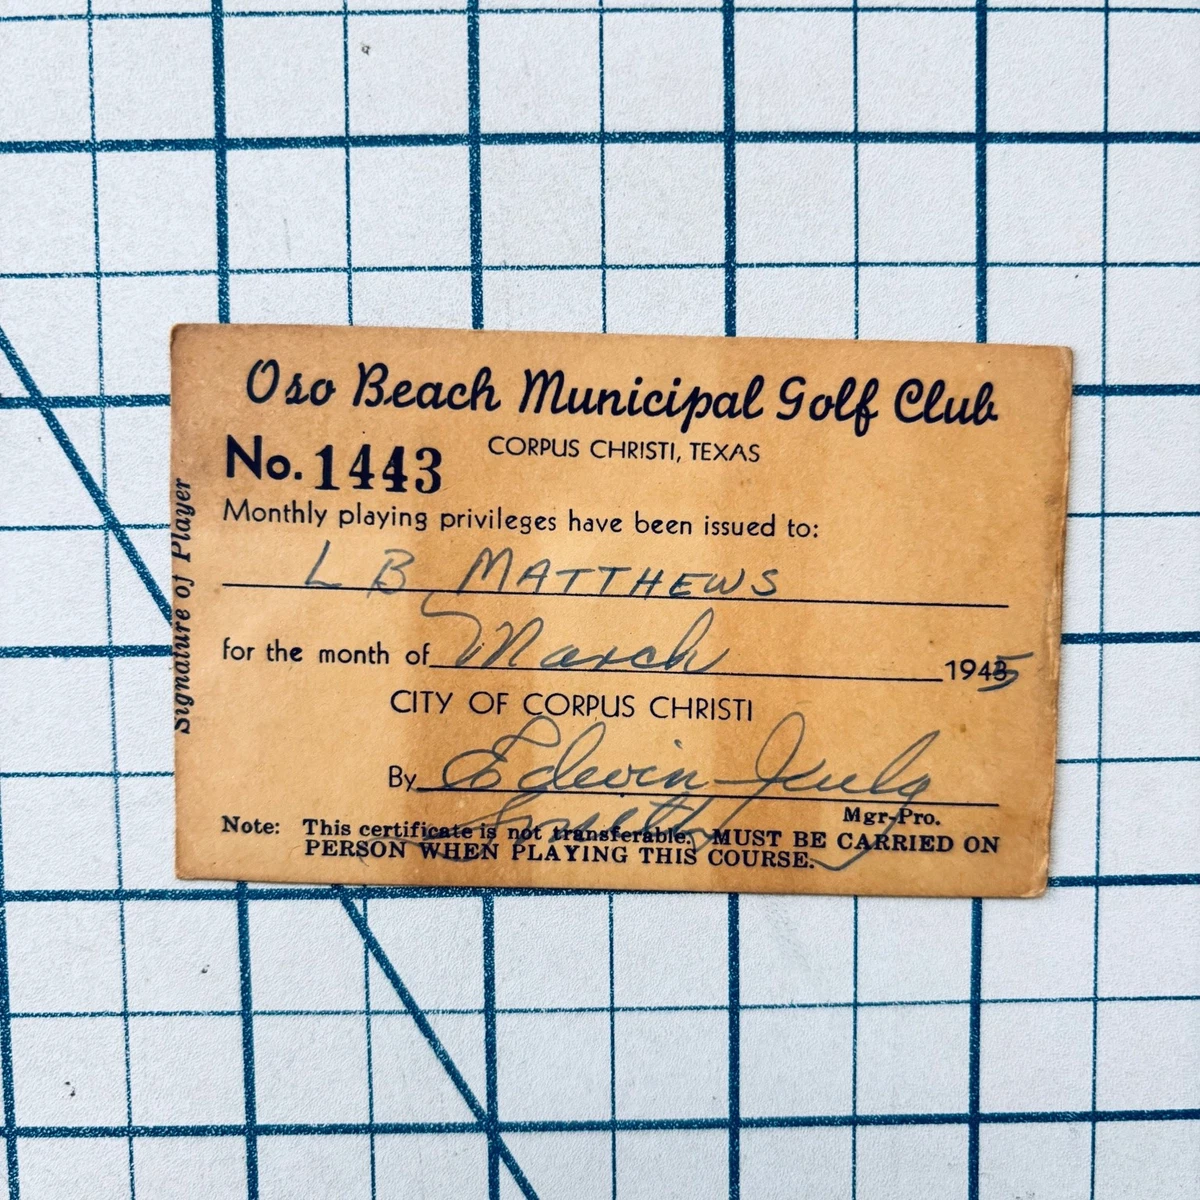 Oso Beach Municipal Golf Club
CORPUS CHRISTI, TEXAS
No. 1443
Monthly playing privileges have been issued to:
L B MATTHEWS
for the month of March 1945
CITY OF CORPUS CHRISTI
By Edwin
Mgr-Pro.
Note: This certificate is not transferable. MUST BE CARRIED ON
PERSON WHEN PLAYING THIS COURSE.
Signature of Player